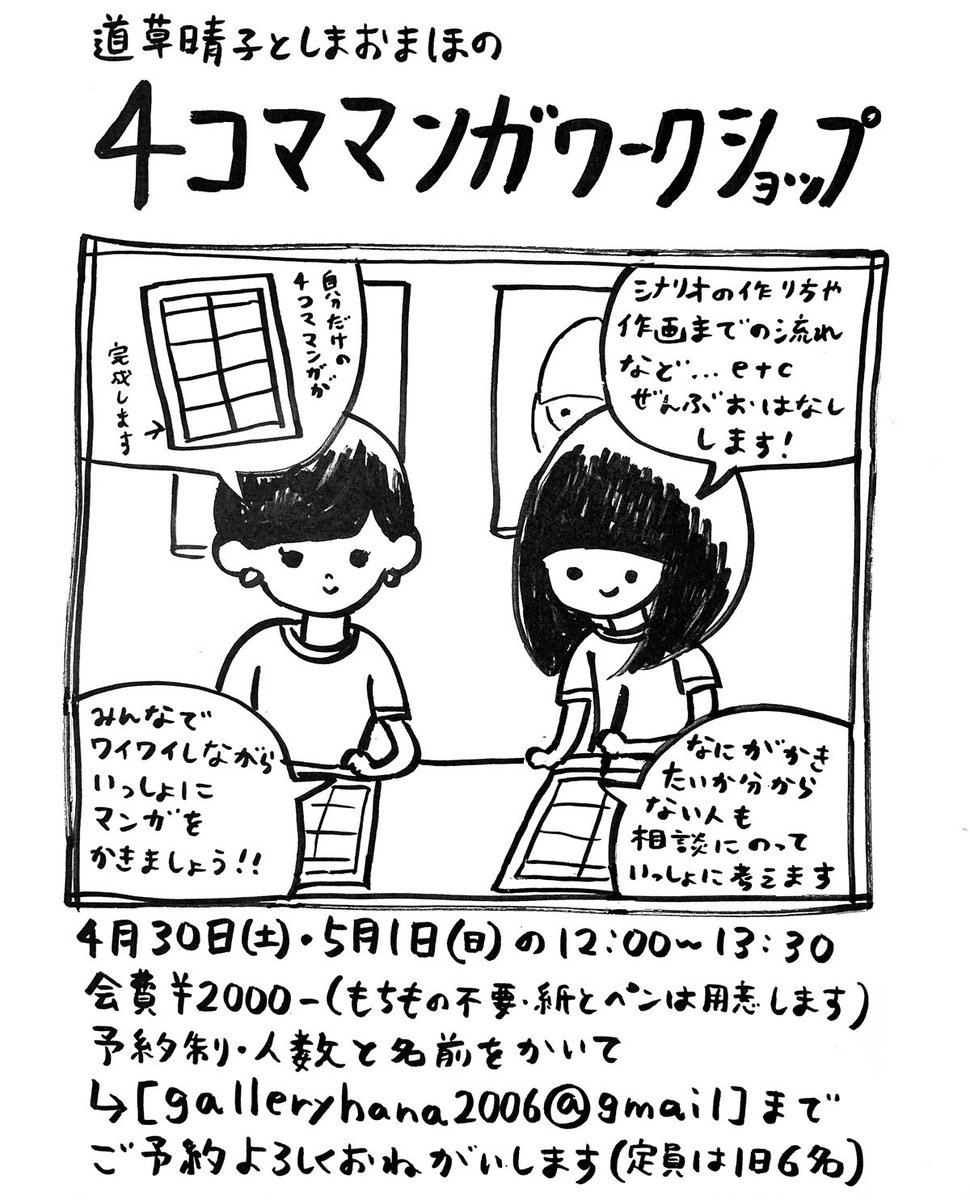 道草晴子としまおまほの
4コママンガワークショップ
シナリオの作り方や
作画までの流れ
など...etc
ぜんぶおはなし
します!
自分だけの
4コママンガが
完成します
みんなで
ワイワイしながら
いっしょに
マンガを
かきましょう!!
なにがかき
たいか分から
ない人も
相談にのって
いっしょに考えます
4月30日(土)・5月1日(日)の12:00〜13:30
会費¥2000-(もちもの不要・紙とペンは用意します)
予約制・人数と名前をかいて
↳[galleryhana2006@gmail]まで
ご予約よろしくおねがいします(定員は1日6名)